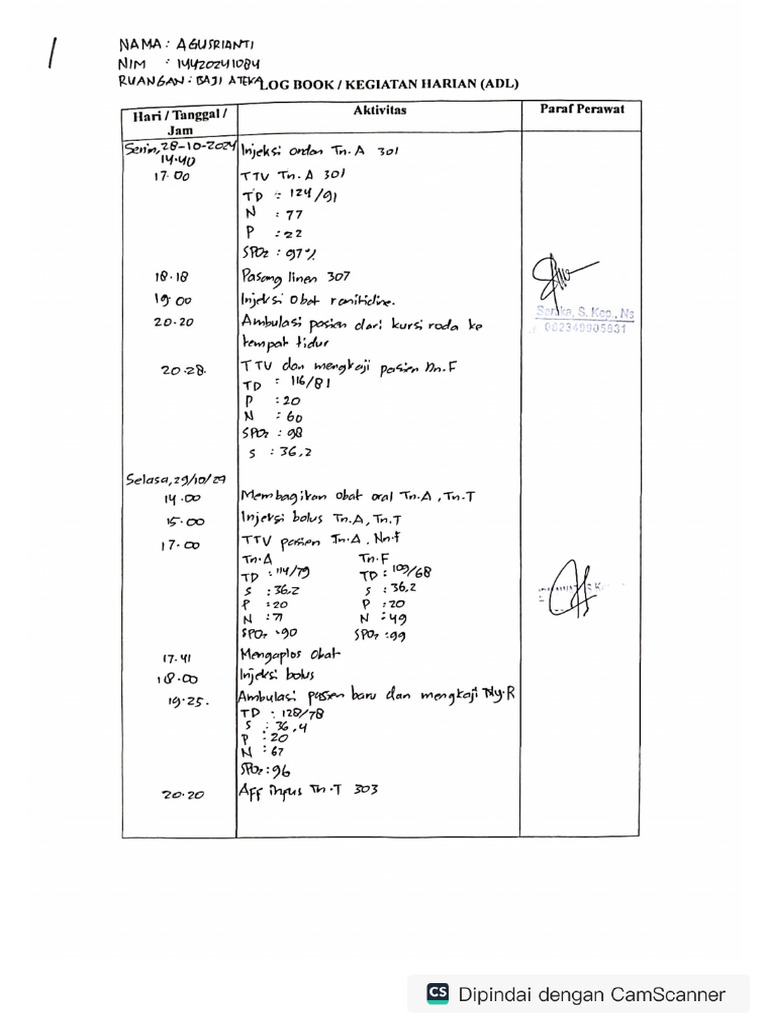 NAMA : AGUSRIANTI
NIM : 14420241084
RUANGAN : BAJI ATEKA
LOG BOOK / KEGIATAN HARIAN (ADL)
Hari / Tanggal / Jam Aktivitas Paraf Perawat
Senin, 28-10-2024
14.40 Injeksi Tn.A 301
17.00 TTV Tn.A 301
TD : 124/91
N : 77
P : 22
SPO2 : 97%
18.18 Pasang linen 307
19.00 Injeksi obat ranitidine.
20.20 Ambulasi pasien dari kursi roda ke
tempat tidur
20.28. TTV dan mengkaji pasien Nn.F
TD : 116/81
P : 20
N : 60
SPO2 : 98
S : 36,2
S. Kep., Ns
Selasa, 29/10/29
14.00 Membagikan obat oral Tn.A, Tn.T
15.00 Injeksi bolus Tn.A, Tn.T
17.00 TTV pasien Tn.A, Nn.F
Tn.A Tn.F
TD : 114/79 TD : 109/68
S : 36,2 S : 36,2
P : 20 P : 20
N : 71 N : 49
SPO2 : 90 SPO2 : 99
17.41 Mengaplos obat
18.00 Injeksi bolus
19.25. Ambulasi pasien baru dan mengkaji Ny.R
TD : 128/78
S : 36,4
P : 20
N : 67
SPO2 : 96
20.20 Aff infus Tn.T 303
CS Dipindai dengan CamScanner